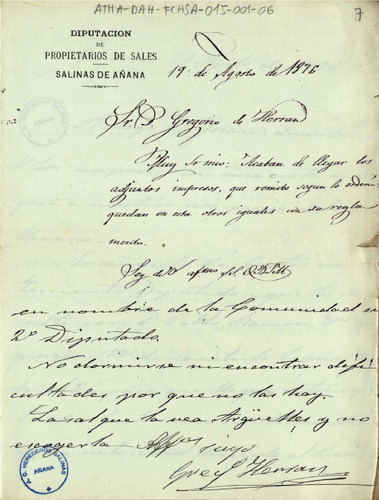 ATHA-DAH-FCHSA-015-001-06
7
DIPUTACION
DE
PROPIETARIOS DE SALES
SALINAS DE AÑANA
19 de Agosto de 1876
Sr. D. Gregorio de Herran
Muy Sr mio: Acaban de llegar los
adjuntos impresos, que remito segun lo orden
quedan en esta otros iguales con su regla
mento.
Soy de V afmo S.S. Q B S M
en nombre de la Comunidad su
2º Diputado.
No dormirse ni encontrar difi
cultades por que no las hay.
La sal que la vea Argüelles y no
escogerla
suyo
Greg Herran
HEREDEROS SALINAS
AÑANA